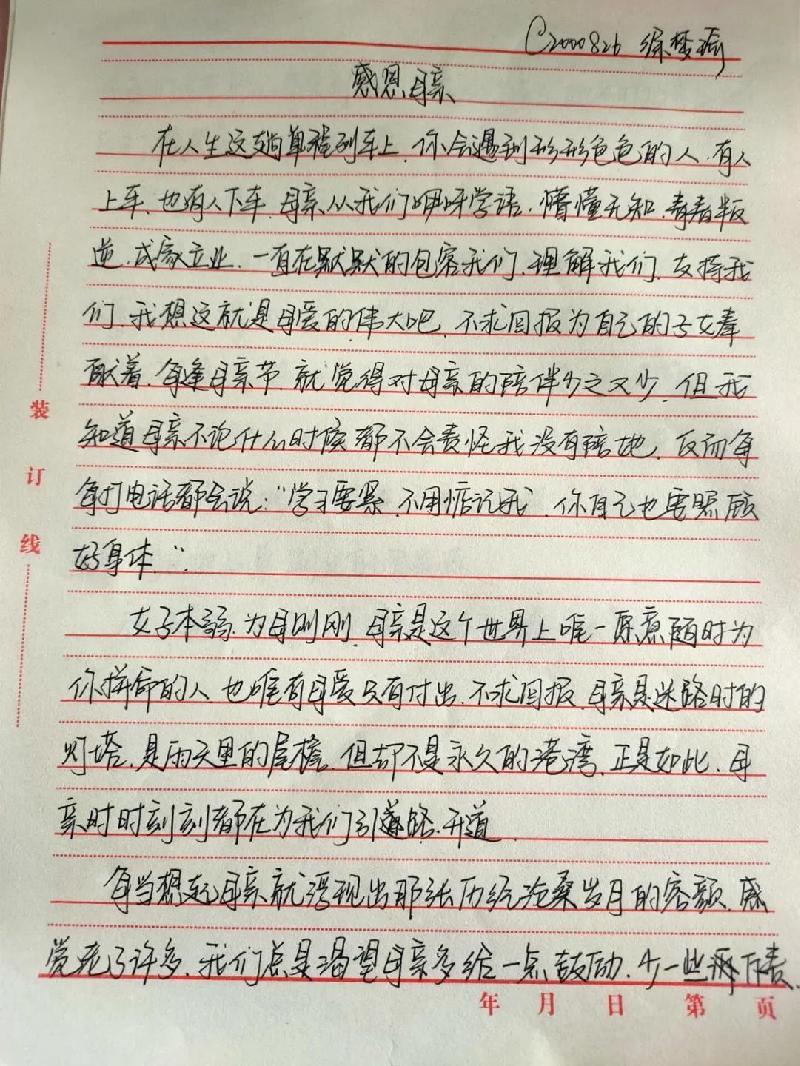 C2000826 徐梦瑜
感恩母亲
在人生这趟单程列车上,你会遇到形形色色的人,有人
上车,也有人下车,母亲从我们咿呀学语,懵懂无知,青春叛
逆,成家立业,一直在默默的包容我们,理解我们,支持我
们,我想这就是母爱的伟大吧,不求回报为自己的子女奉
献着,每逢母亲节就觉得对母亲的陪伴少之又少,但我
知道母亲不论什么时候都不会责怪我没有陪她,反而每
每打电话都会说:“学习要紧,不用惦记我,你自己也要照顾
好身体.”
女子本弱,为母则刚,母亲是这个世界上唯一愿意随时为
你拼命的人,也唯有母爱只有付出,不求回报,母亲是迷路时的
灯塔,是雨天里的屋檐,但却不是永久的港湾,正是如此,母
亲时时刻刻都在为我们引路,开道
每当想起母亲就浮现出那张历经沧桑岁月的容颜,感
觉老了许多,我们总是渴望母亲多给一点鼓励,少一些责
装订线
年 月 日 第 页